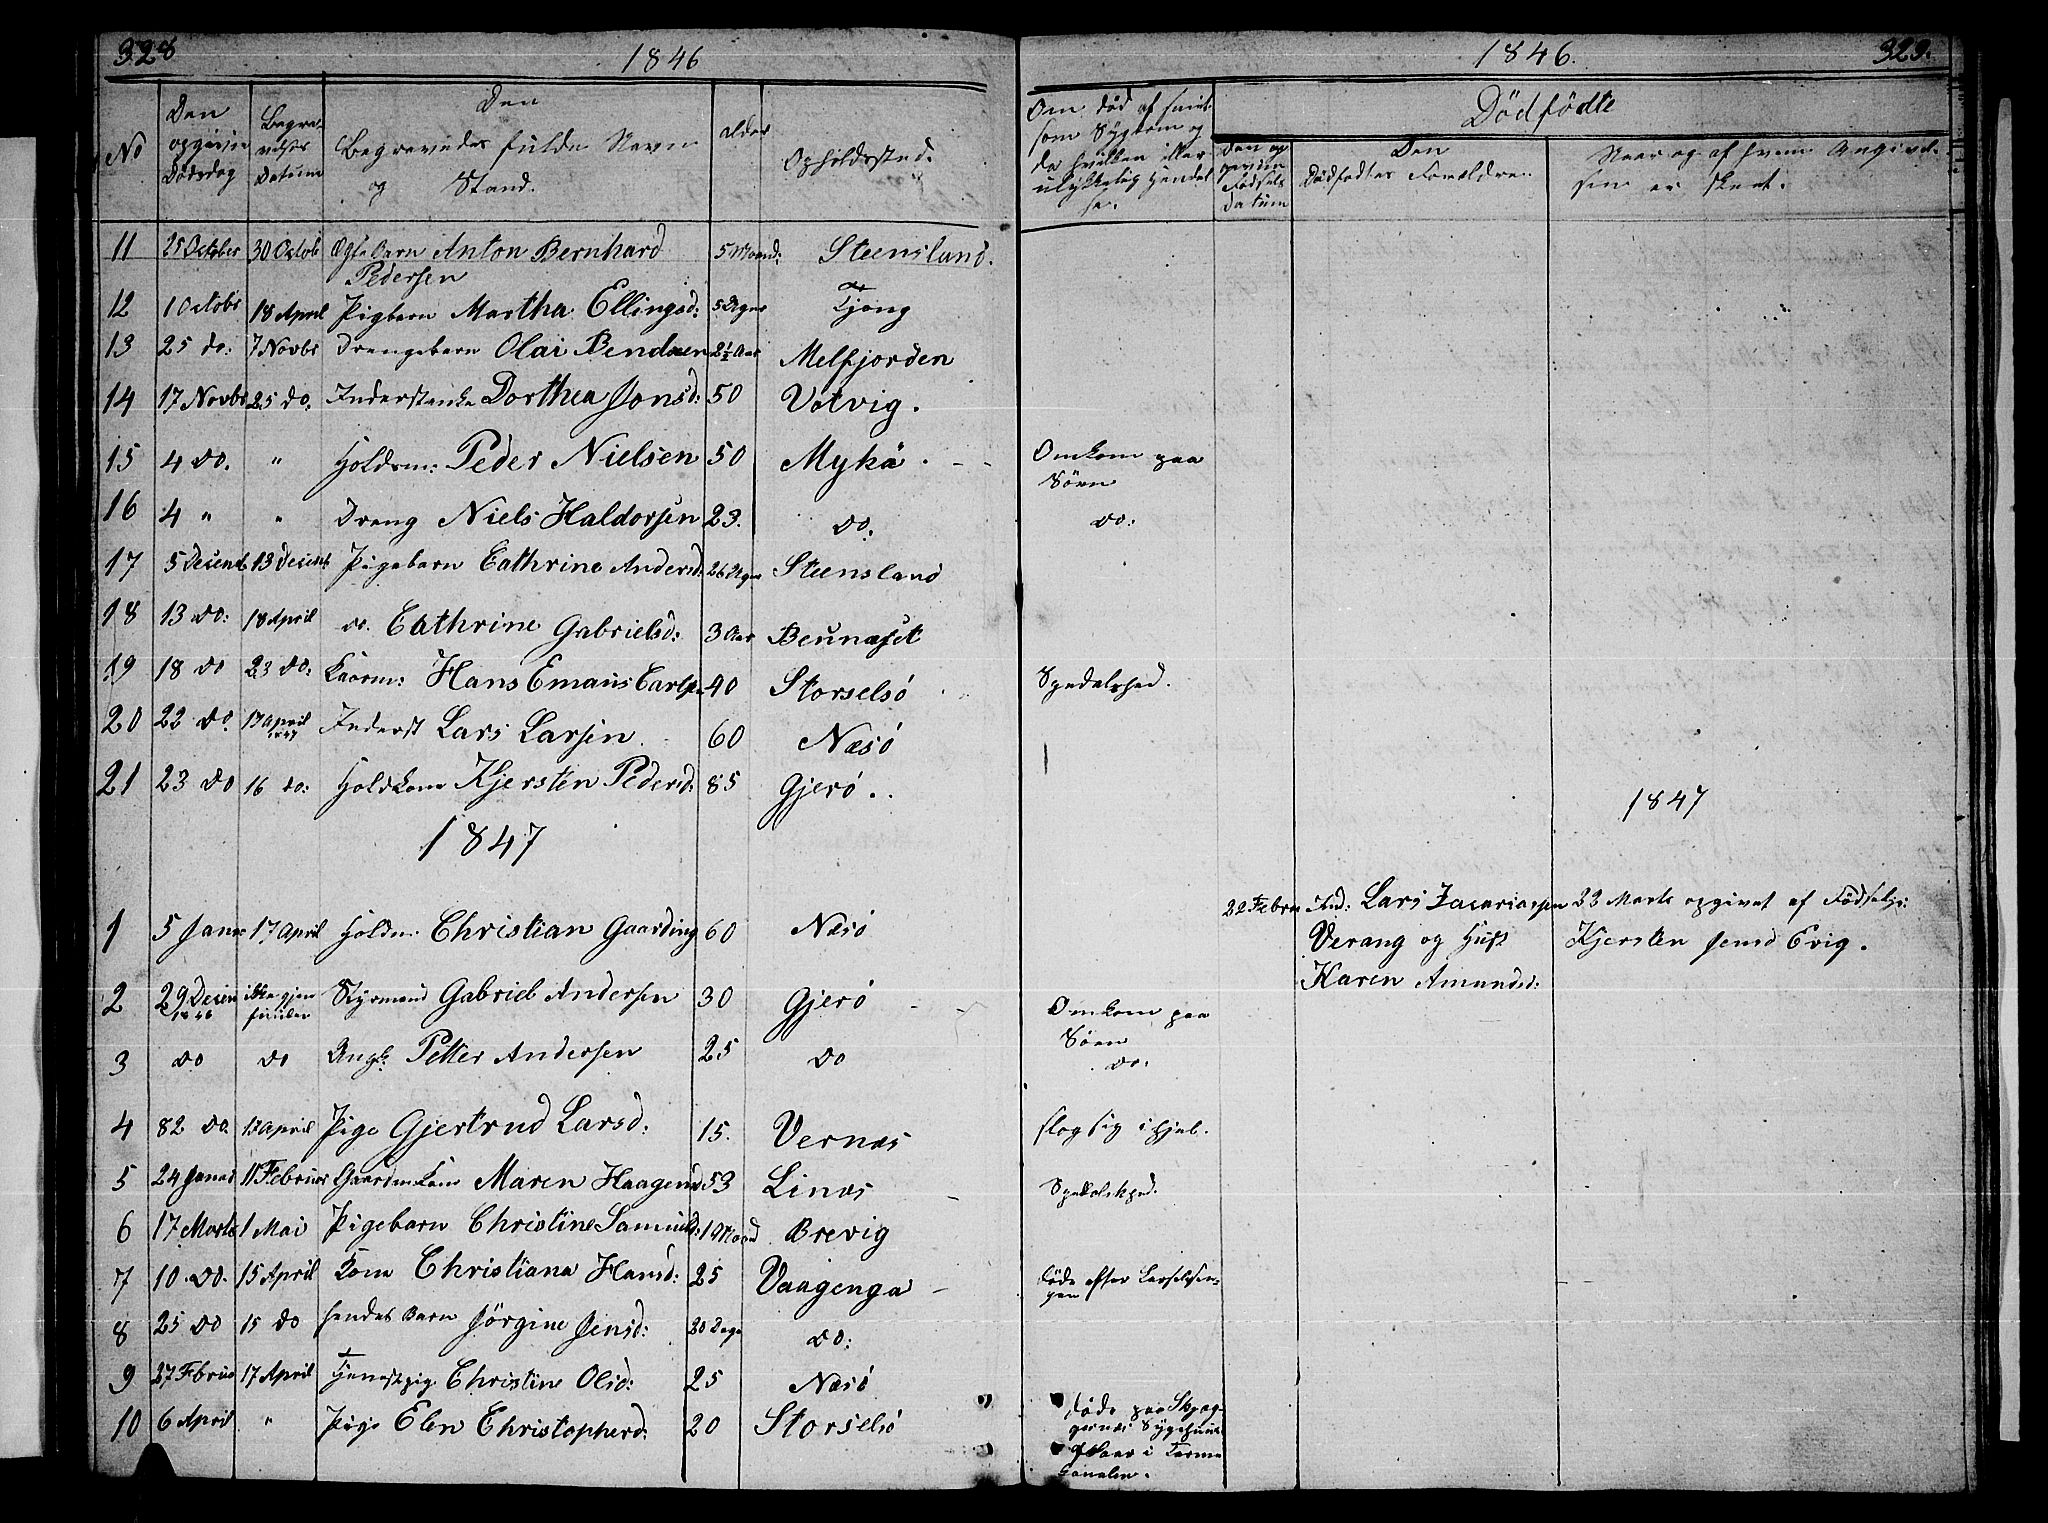 328
1846
No
Den opgivne Dødsdag
Begravelses Datum
Den Begravedes fulde Navn og Stand.
Alder
Opholdssted.
11 25 October 30 Octob Ægte Barn Anton Bernhard 5 Maand: Steensland.
Pedersen
12 1 Octobr 18 April Pigbarn Martha Ellingsd: 5 Uger Tjong
13 25 do: 7 Novbr Drengebarn Olai Bendsen 2½ Aar Melfjorden
14 17 Novbr 25 do. Inderstenke Dorthea Jonsd: 50 Votvig.
15 4 do. " Holdsm: Peder Nielsen 50 Mykä.
16 4 " " Dreng Niels Haldorsen 23. do.
17 5 Decemb 13 Decemb Pigebarn Cathrine Andersd: 26 Uger Steensland
18 13 do: 18 April do. Cathrine Gabrielsd: 3 Aar Bennæset
19 18 do 23 do: Kaarm: Hans Emaus Carls 40 Storselsö
20 22 do 17 April 1847 Inderst Lars Larsen 60 Næsö
21 23 do 16 do: Holdkone Kjersten Pedersd: 85 Gjerö..
1847
1 5 Janr 17 April Holdm: Christian Gaarding 60 Næsö
2 29 Decem 1846 ikke gjenfunden Styrmand Gabriel Andersen 30 Gjerö
3 do do Ungk: Petter Andersen 25 do
4 82 do. 17 April Pige Gjertrud Larsd: 15. Vernæs
5 24 Januar 11 Februar Gaardm Kone Maren Haagensd 53 Linæs
6 17 Marts 1 Mai Pigebarn Christine Samuelsd: 1 Maaned Brevig
7 10 do. 15 April Kone Christiana Hansd: 25 Vaagenga
8 25 do 15 do hendes Barn Jörgine Jensd: 20 Dage do:
9 27 Fbruar 17 April Tjenestpige Christine Olsd: 25 Næsö
10 6 April " Pige Elen Christophersd: 20 Storselsö
1846.
329.
Om død af saint
som Sygdom og
da hvilken eller
ulykkelig Hendel
se.
Dödfödte
Den opgivne Födsels Datum
Den Dödfødtes Forældre.
Naar og af hvem Angivelsen er skeet.
Omkom paa
Söen
do:
Spedalskhed.
1847
22 Febru Ind: Lars Zacariassen 23 Marts opgivet af Födselhj:
Verang og Hust Kjersten Jensd Evig.
Karen Amundsd:
Omkom paa
Söen
do:
slog sig ihjel.
Spedalskhed.
döde efter Barselsen-
gen
döde paa Skjag-
gernæs Sygehuus